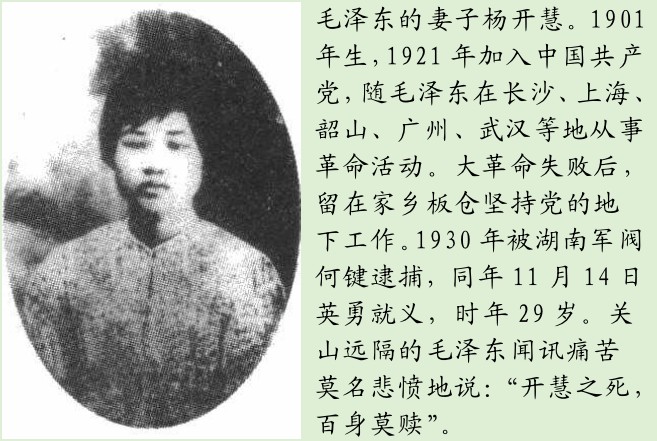 毛泽东的妻子杨开慧。1901
年生,1921年加入中国共产
党,随毛泽东在长沙、上海、
韶山、广州、武汉等地从事
革命活动。大革命失败后,
留在家乡板仓坚持党的地
下工作。1930年被湖南军阀
何键逮捕,同年11月14日
英勇就义,时年29岁。关
山远隔的毛泽东闻讯痛苦
莫名悲愤地说:“开慧之死,
百身莫赎”。